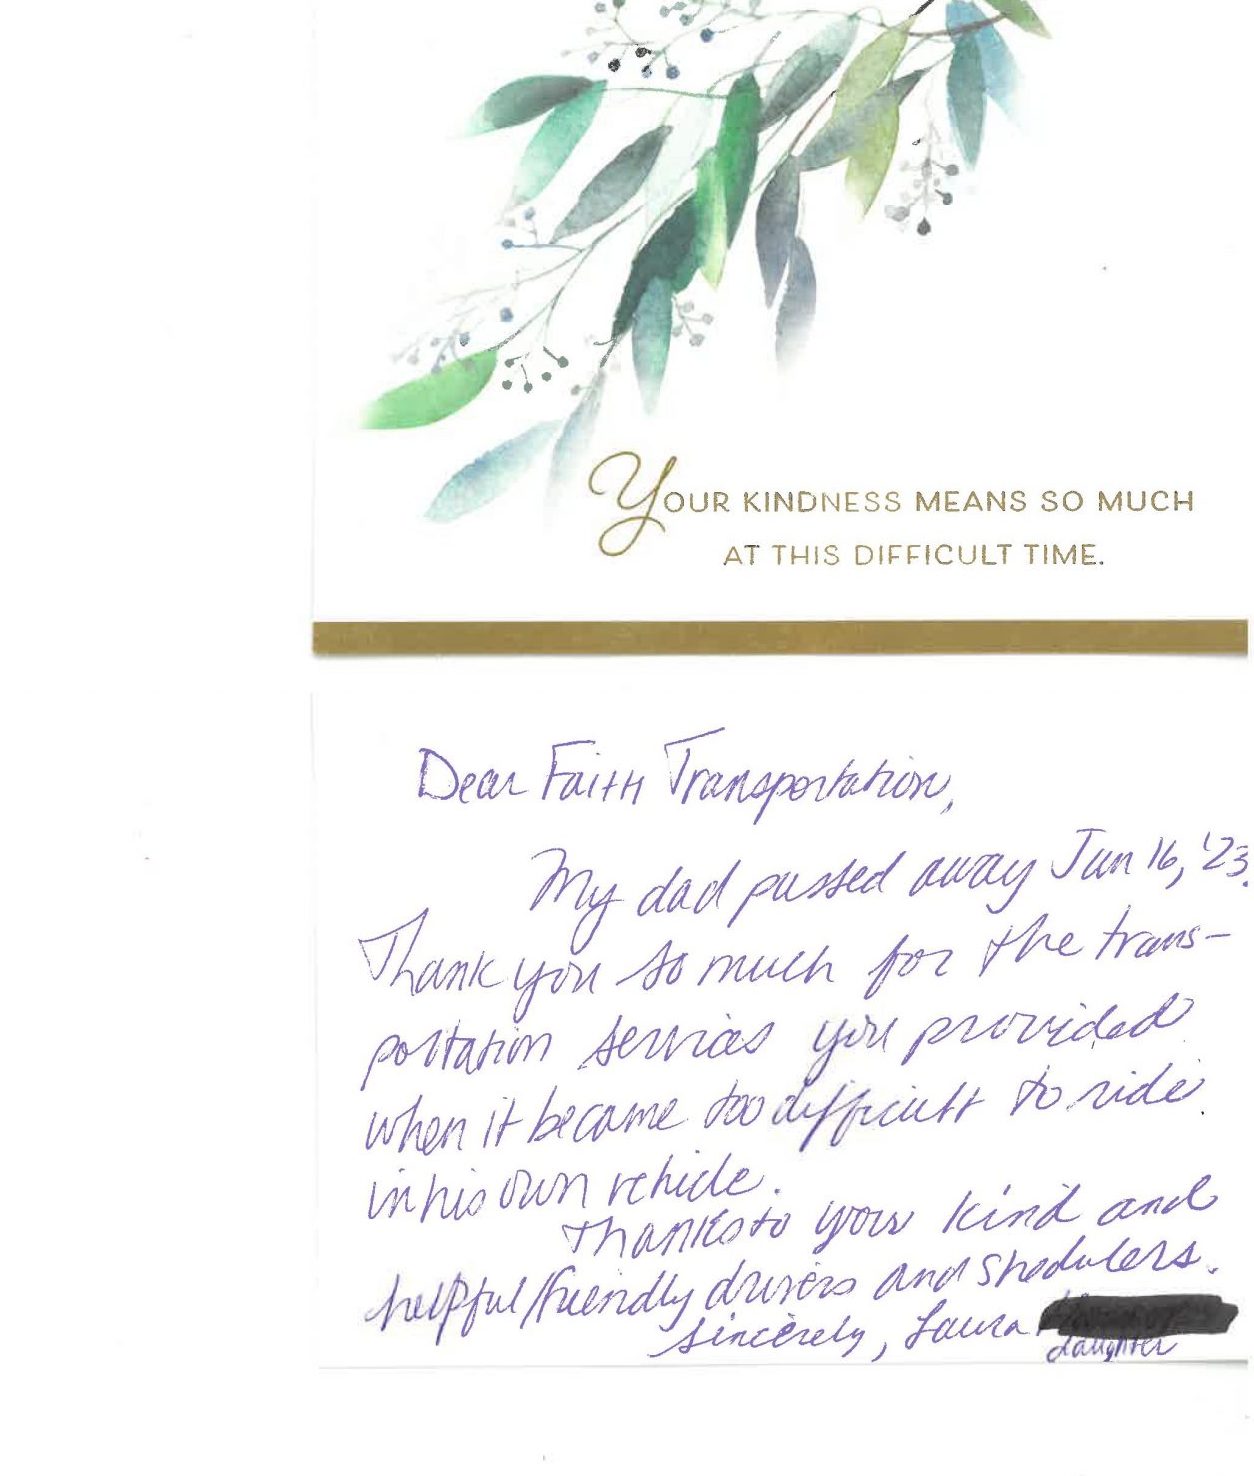 YOUR KINDNESS MEANS SO MUCH
AT THIS DIFFICULT TIME.
Dear Faith Transportation,
My dad passed away Jun 16, '23.
Thank you so much for the trans-
portation services you provided
when it became too difficult to ride
in his own vehicle.
Thanks to your kind and
helpful/friendly drivers and shedulers.
Sincerely, Laura
daughter